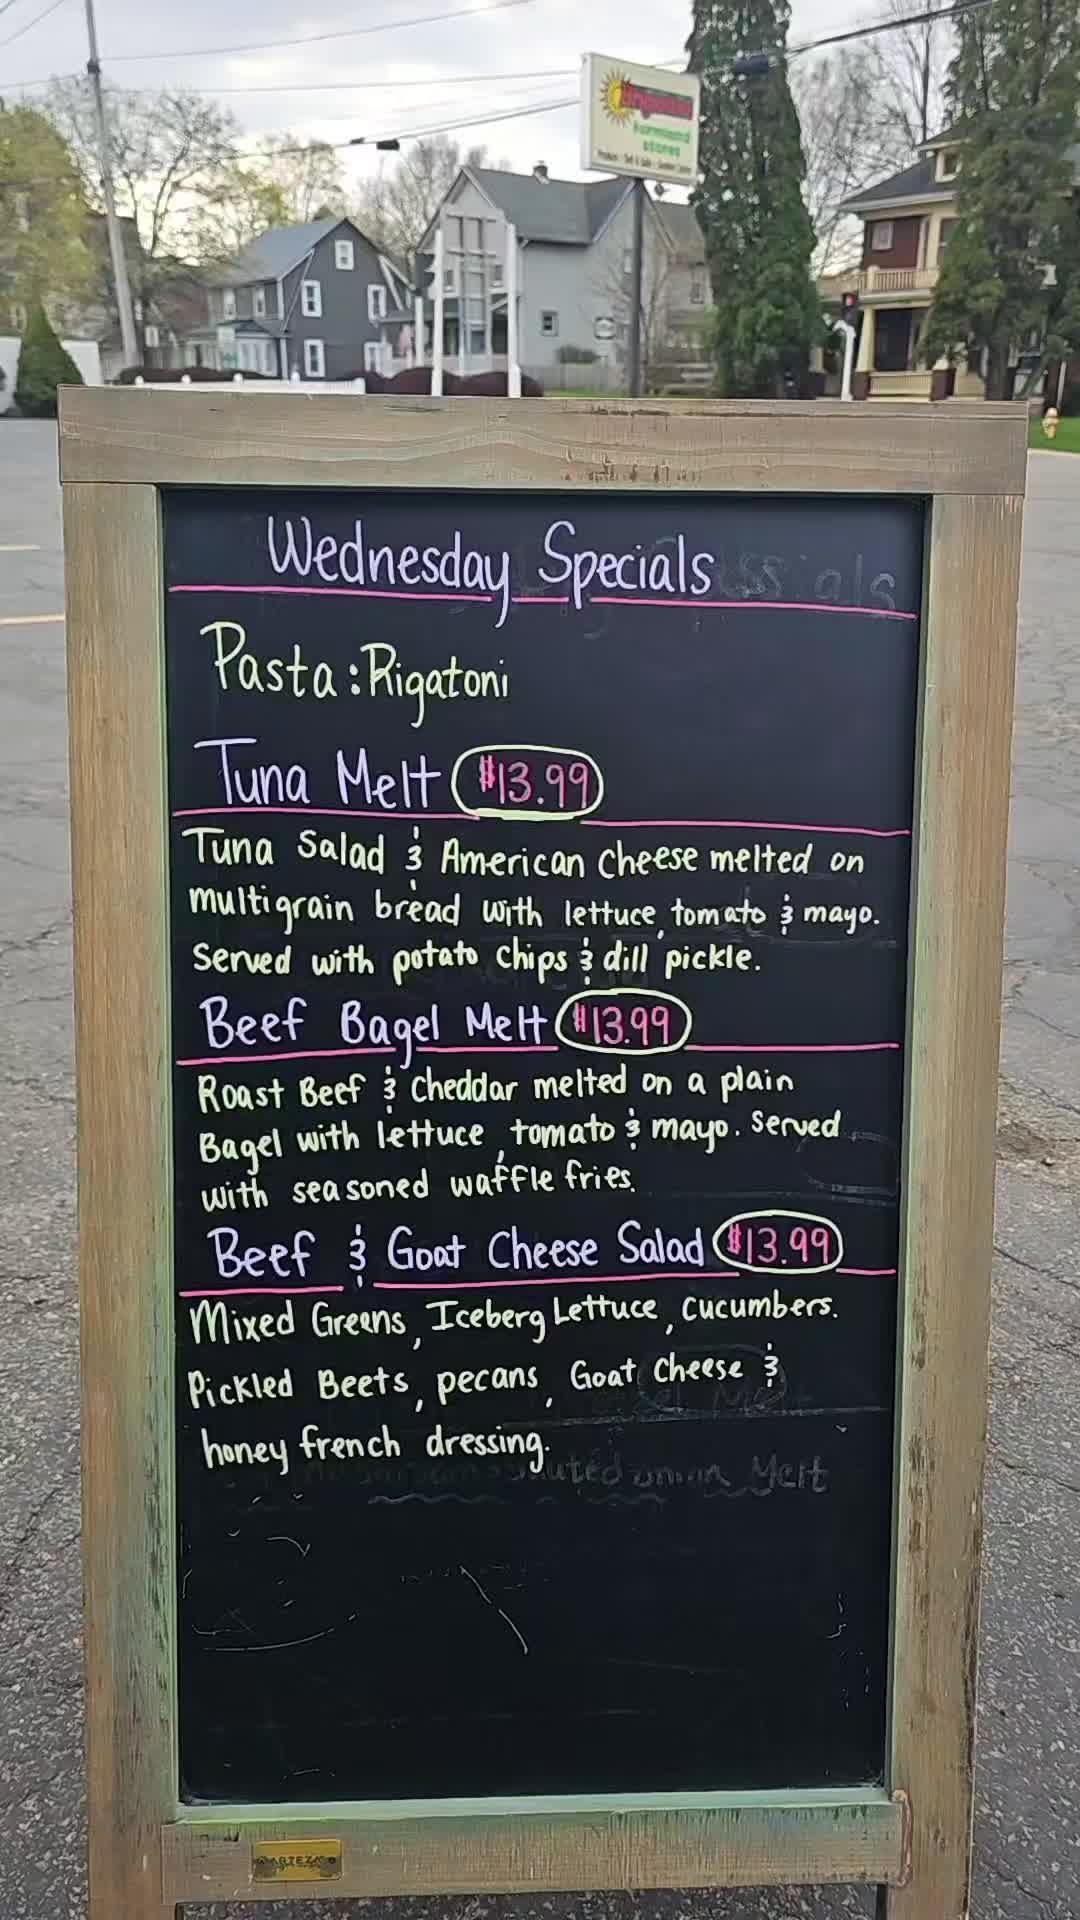 farmstand
stores
Wednesday Specials
Pasta: Rigatoni
Tuna Melt $13.99
Tuna Salad & American Cheese melted on
multigrain bread with lettuce, tomato & mayo.
Served with potato chips & dill pickle.
Beef Bagel Melt $13.99
Roast Beef & Cheddar melted on a plain
Bagel with lettuce, tomato & mayo. Served
with seasoned waffle fries.
Beef & Goat Cheese Salad $13.99
Mixed Greens, Iceberg Lettuce, cucumbers.
Pickled Beets, pecans, Goat Cheese &
honey french dressing.
Melt